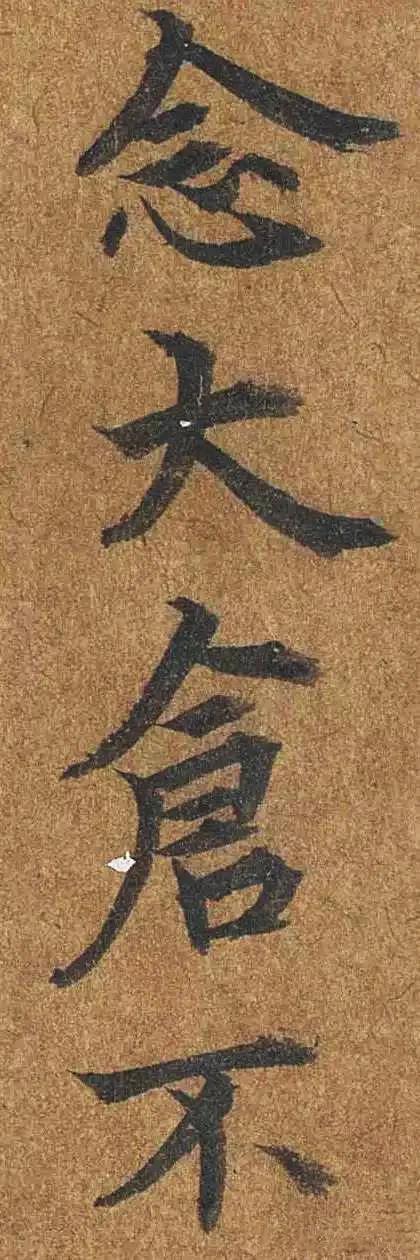 念大倉不